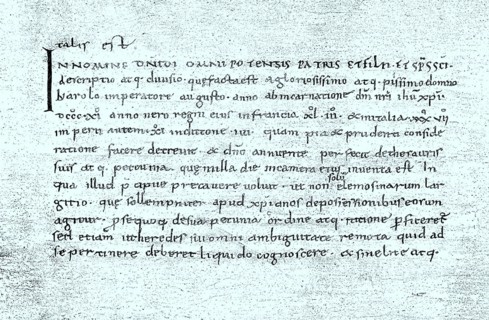 talis est.
IN NOMINE DNI DI OMNIPOTENSIS PATRIS ET FILII. ET SPS SCI.
descriptio atq. diuisio. que facta est a gloriosissimo atq. piissimo domno
karolo imperatore augusto. anno ab incarnatione dni nri ihu xpi.
dcccxi. anno uero regni eius in francia xliii. & in italia xxxvii
imperii autem. xi. indictione iiii. quam pia & prudenti conside
ratione facere decreuit. & dno annuente. perfecit de thesauris
suis atq. pecunia. que in illa die in camera eius inuenta est. In
qua illud pcipue precauere uoluit. ut non solu elemosinarum lar
gitio. que sollempniter apud xpianos de possessionibus eorum
agitur. p se quoq. de sua pecunia ordine atq. ratione pficeret
sed etiam ut heredes sui omni ambiguitate remota quid ad
se pertinere deberet liquido cognoscere. & sine lite atq.